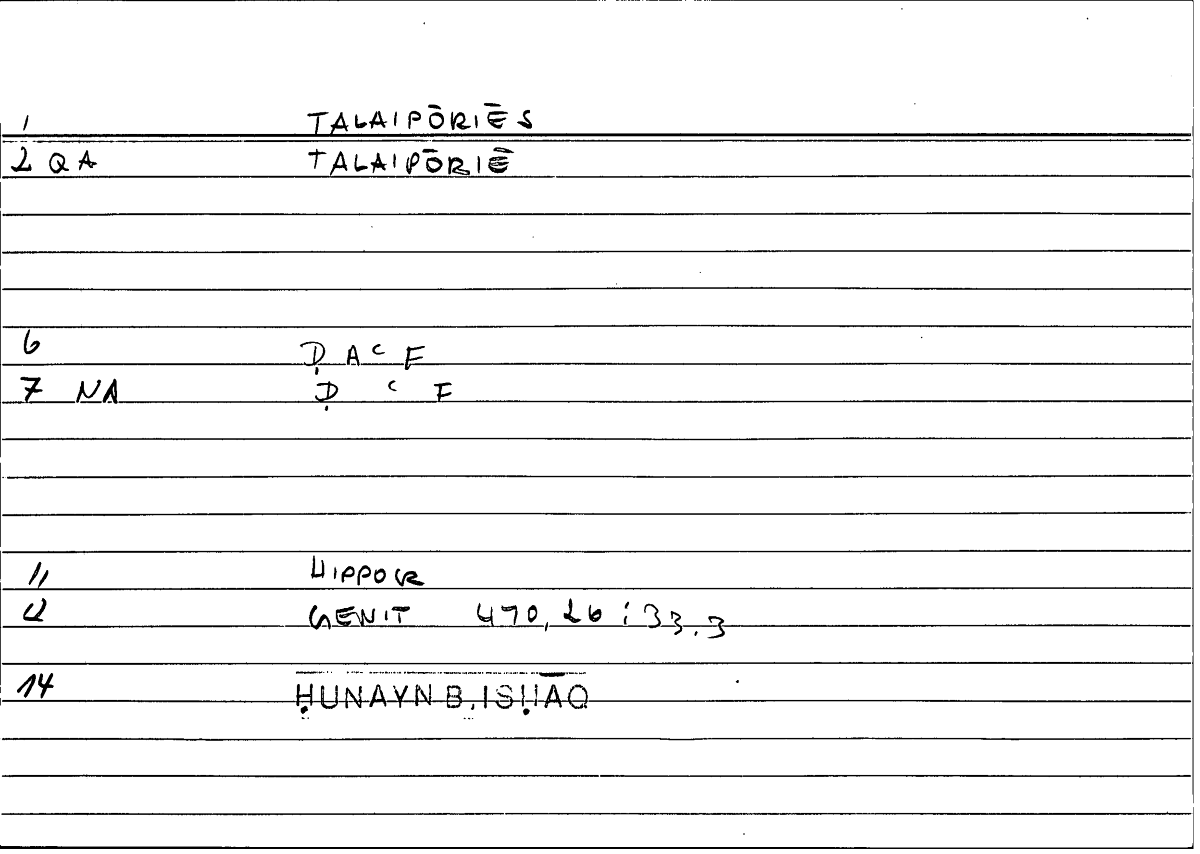 1 TALAIPŌRIĒS
2 QA TALAIPŌRIĒ
6 ḌAʿF
7 NA Ḍ ʿ F
11 HIPPOCR
12 GENIT 470,26 ; 33.3
14 ḤUNAYN B. ISḤĀQ